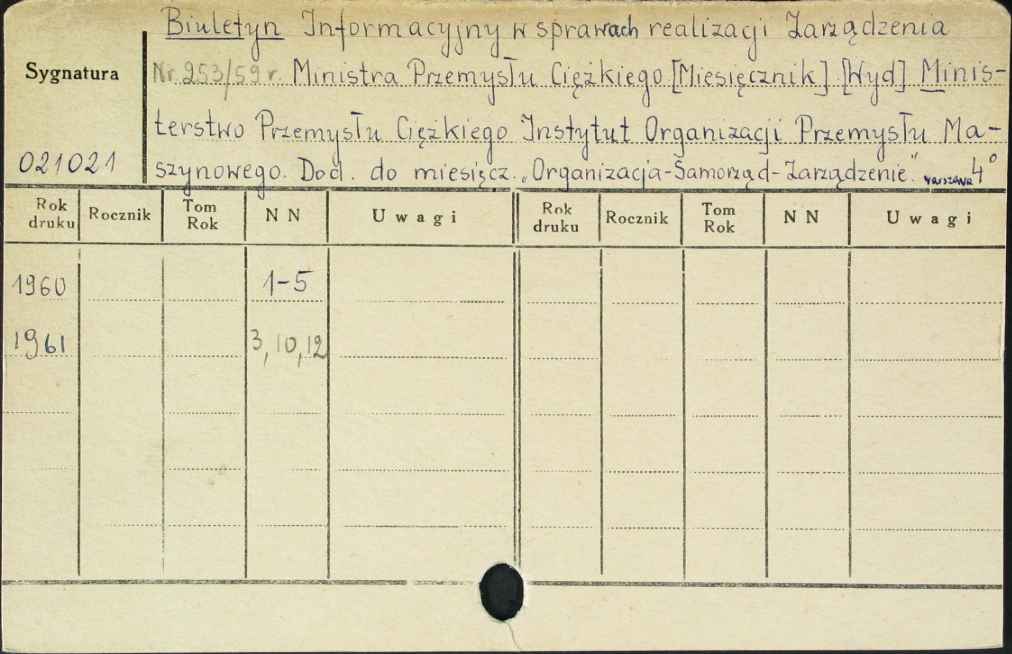 Biuletyn Informacyjny w sprawach realizacji Zarządzenia
Sygnatura
Nr. 253/59 r. Ministra Przemysłu Ciężkiego [Miesięcznik] [Wyd] Minis-
terstwo Przemysłu Ciężkiego Instytut Organizacji Przemysłu Ma-
021021
szynowego. Dod. do miesięcz. „Organizacja-Samorząd-Zarządzenie". Warszawa 4°
Rok druku Rocznik Tom Rok NN Uwagi Rok druku Rocznik Tom Rok NN Uwagi
1960 1-5
1961 3, 10, 12